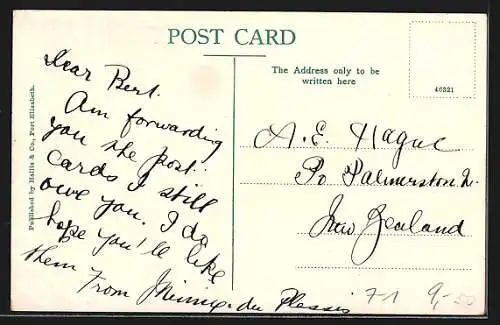 POST CARD
The Address only to be
written here
46321
Published by Hallis & Co., Port Elizabeth.
Dear Bert.
Am forwarding
you the post
cards I still
owe you. I do
hope you'll like
them From Minnie du Plessis
A. E. Hague
Po Palmerston N.
New Zealand
71 9,-50